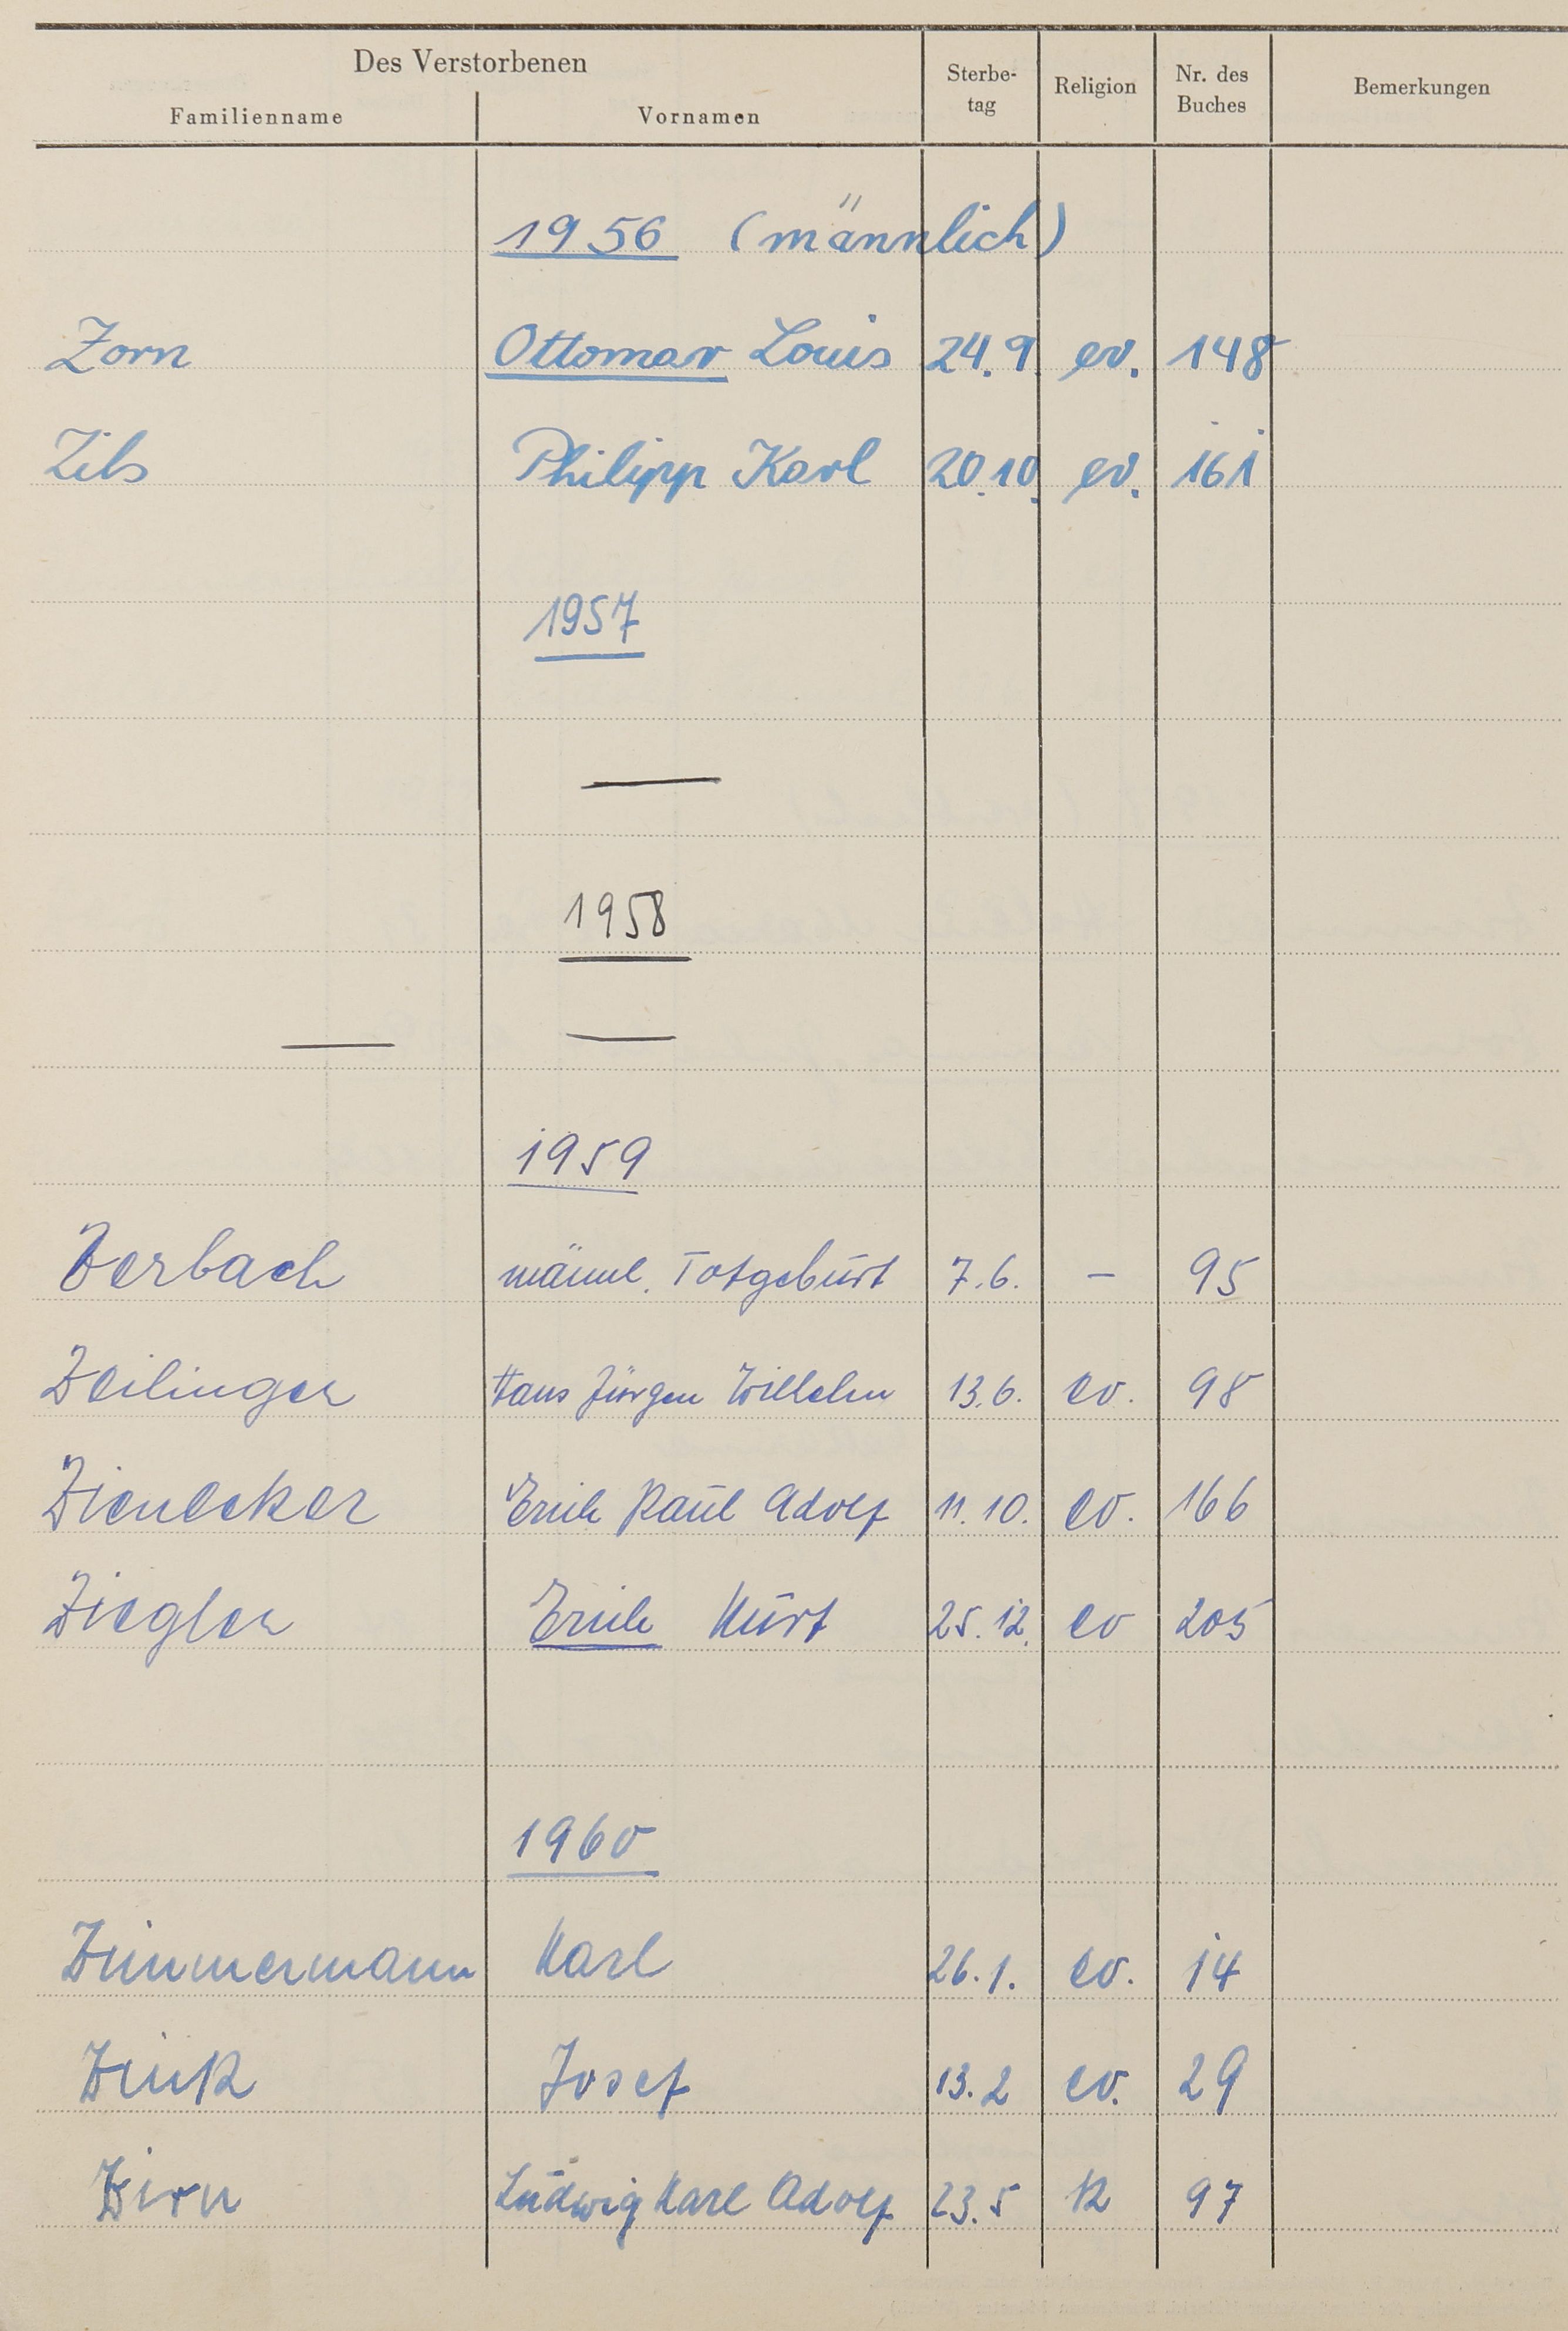 Des Verstorbenen
Familienname Vornamen Sterbe-tag Religion Nr. des Buches Bemerkungen
1956 (männlich)
Zorn Ottomar Louis 24.9. ev. 148
Zils Philipp Karl 20.10. ev. 161
1957
—
1958
— —
1959
Zerbach männl. Totgeburt 7.6. – 95
Zeilinger Hans Jürgen Wilhelm 13.6. ev. 98
Zienecker Erich Paul Adolf 11.10. ev. 166
Ziegler Erich Kurt 25.12. ev 205
1960
Zimmermann Karl 26.1. ev. 14
Zink Josef 13.2 ev. 29
Zirn Ludwig Karl Adolf 23.5 k 97